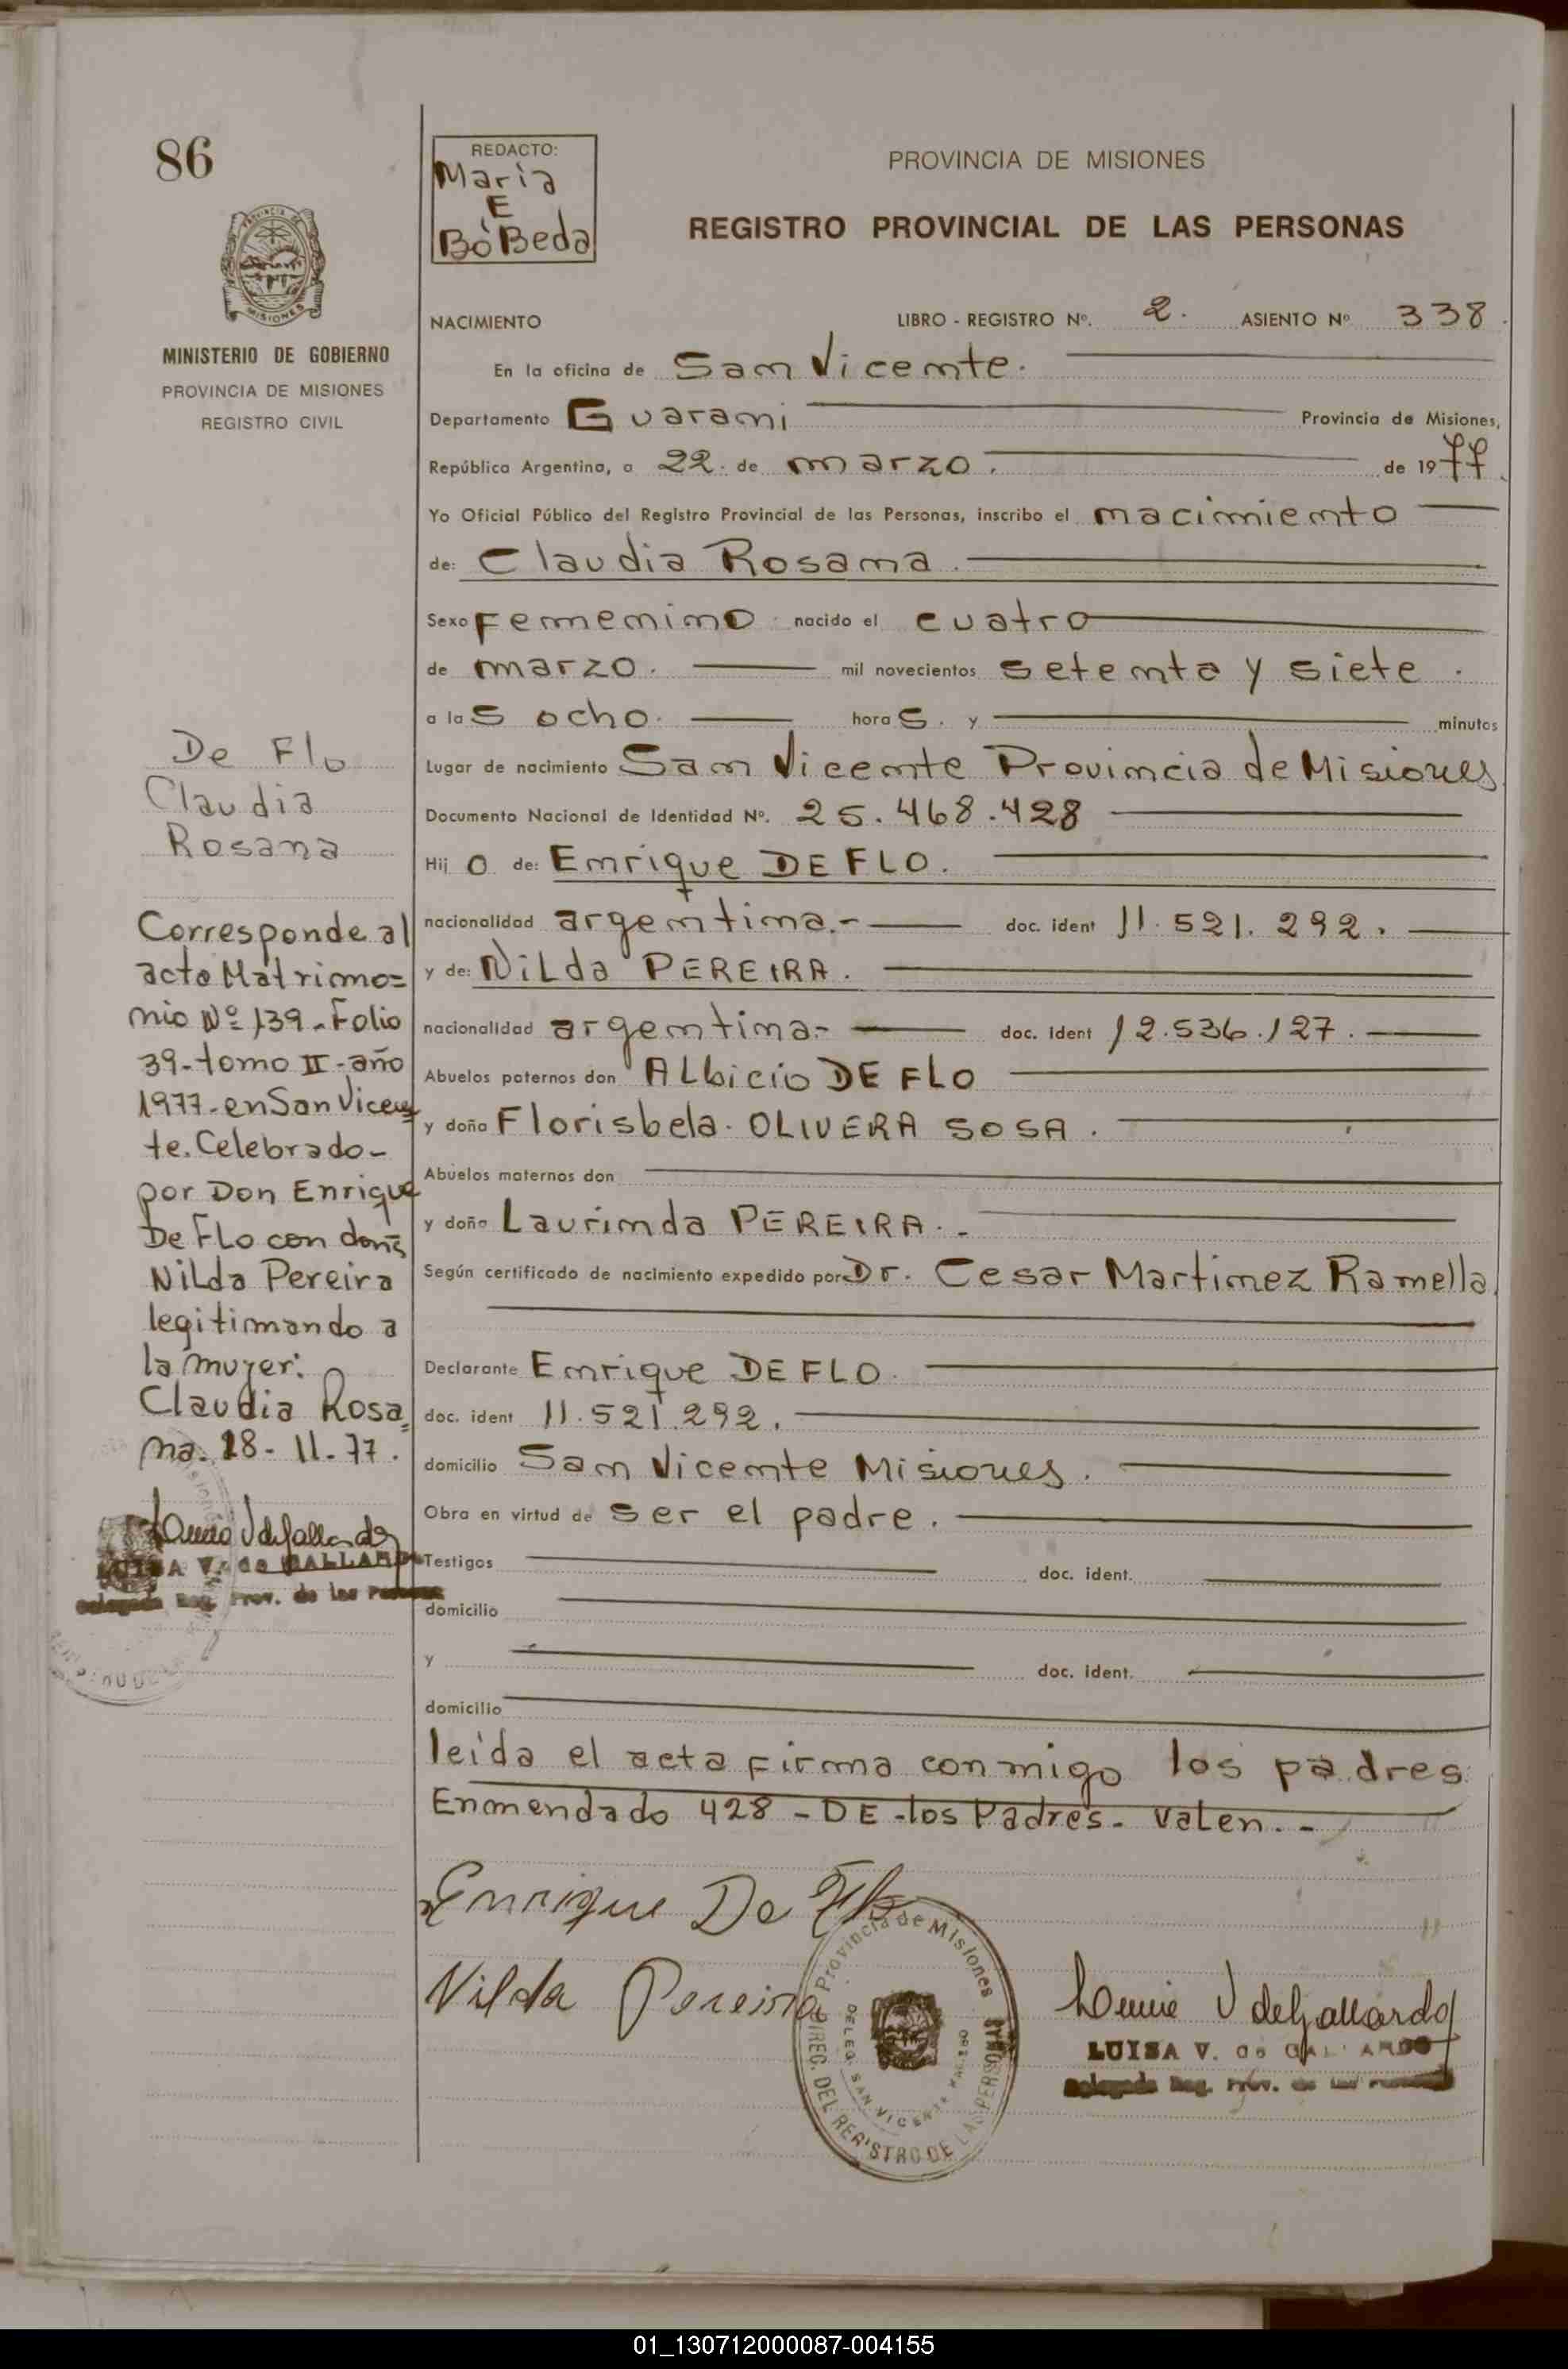 86
PROVINCIA DE
MISIONES
MINISTERIO DE GOBIERNO
PROVINCIA DE MISIONES
REGISTRO CIVIL
De Flo
Claudia
Rosana
Corresponde al
acta Matrimo=
nio Nº 139-Folio
39-tomo II-año
1977-en San Vicen
te. Celebrado-
por Don Enrique
De FLo con doña
NiLda Pereira
legitimando a
la mujer:
Claudia Rosa=
na. 28-11-77.
LUISA V. de GALLARDO
Delegada Reg. Prov. de las Personas
REDACTO:
Maria
E
BóBeda
PROVINCIA DE MISIONES
REGISTRO PROVINCIAL DE LAS PERSONAS
NACIMIENTO LIBRO - REGISTRO Nº. 2. ASIENTO Nº 338
En la oficina de San Vicente.
Departamento Guarani Provincia de Misiones,
República Argentina, a 22. de marzo. de 1977
Yo Oficial Público del Registro Provincial de las Personas, inscribo el nacimiento
de: Claudia Rosana.
Sexo Femenino nacido el cuatro
de marzo. mil novecientos setenta y siete.
a las ocho. horas. y minutos
Lugar de nacimiento San Vicente Provincia de Misiones
Documento Nacional de Identidad Nº. 25.468.428
Hijo de: Enrique DE FLO.
nacionalidad argentina.- doc. ident 11.521.292.
y de: NiLda PEREIRA.
nacionalidad argentina.- doc. ident 12.536.127.
Abuelos paternos don ALbicio DE FLO
y doña Florisbela. OLIVERA SOSA.
Abuelos maternos don
y doña Laurinda PEREIRA.-
Según certificado de nacimiento expedido por Dr. Cesar Martinez Ramella
Declarante Enrique DE FLO.
doc. ident 11.521.292.
domicilio San Vicente Misiones.
Obra en virtud de ser el padre.
Testigos doc. ident.
domicilio
y doc. ident.
domicilio
leida el acta firma conmigo los padres
Enmendado 428-DE-los Padres-vaLen.-
Enrique De Flo
Nilda Pereira
Provincia de Misiones
DIREC. DEL REGISTRO DE LAS PERSONAS
DELEG. SAN VICENTE
LUISA V. de GALLARDO
Delegada Reg. Prov. de las Personas
01_130712000087-004155